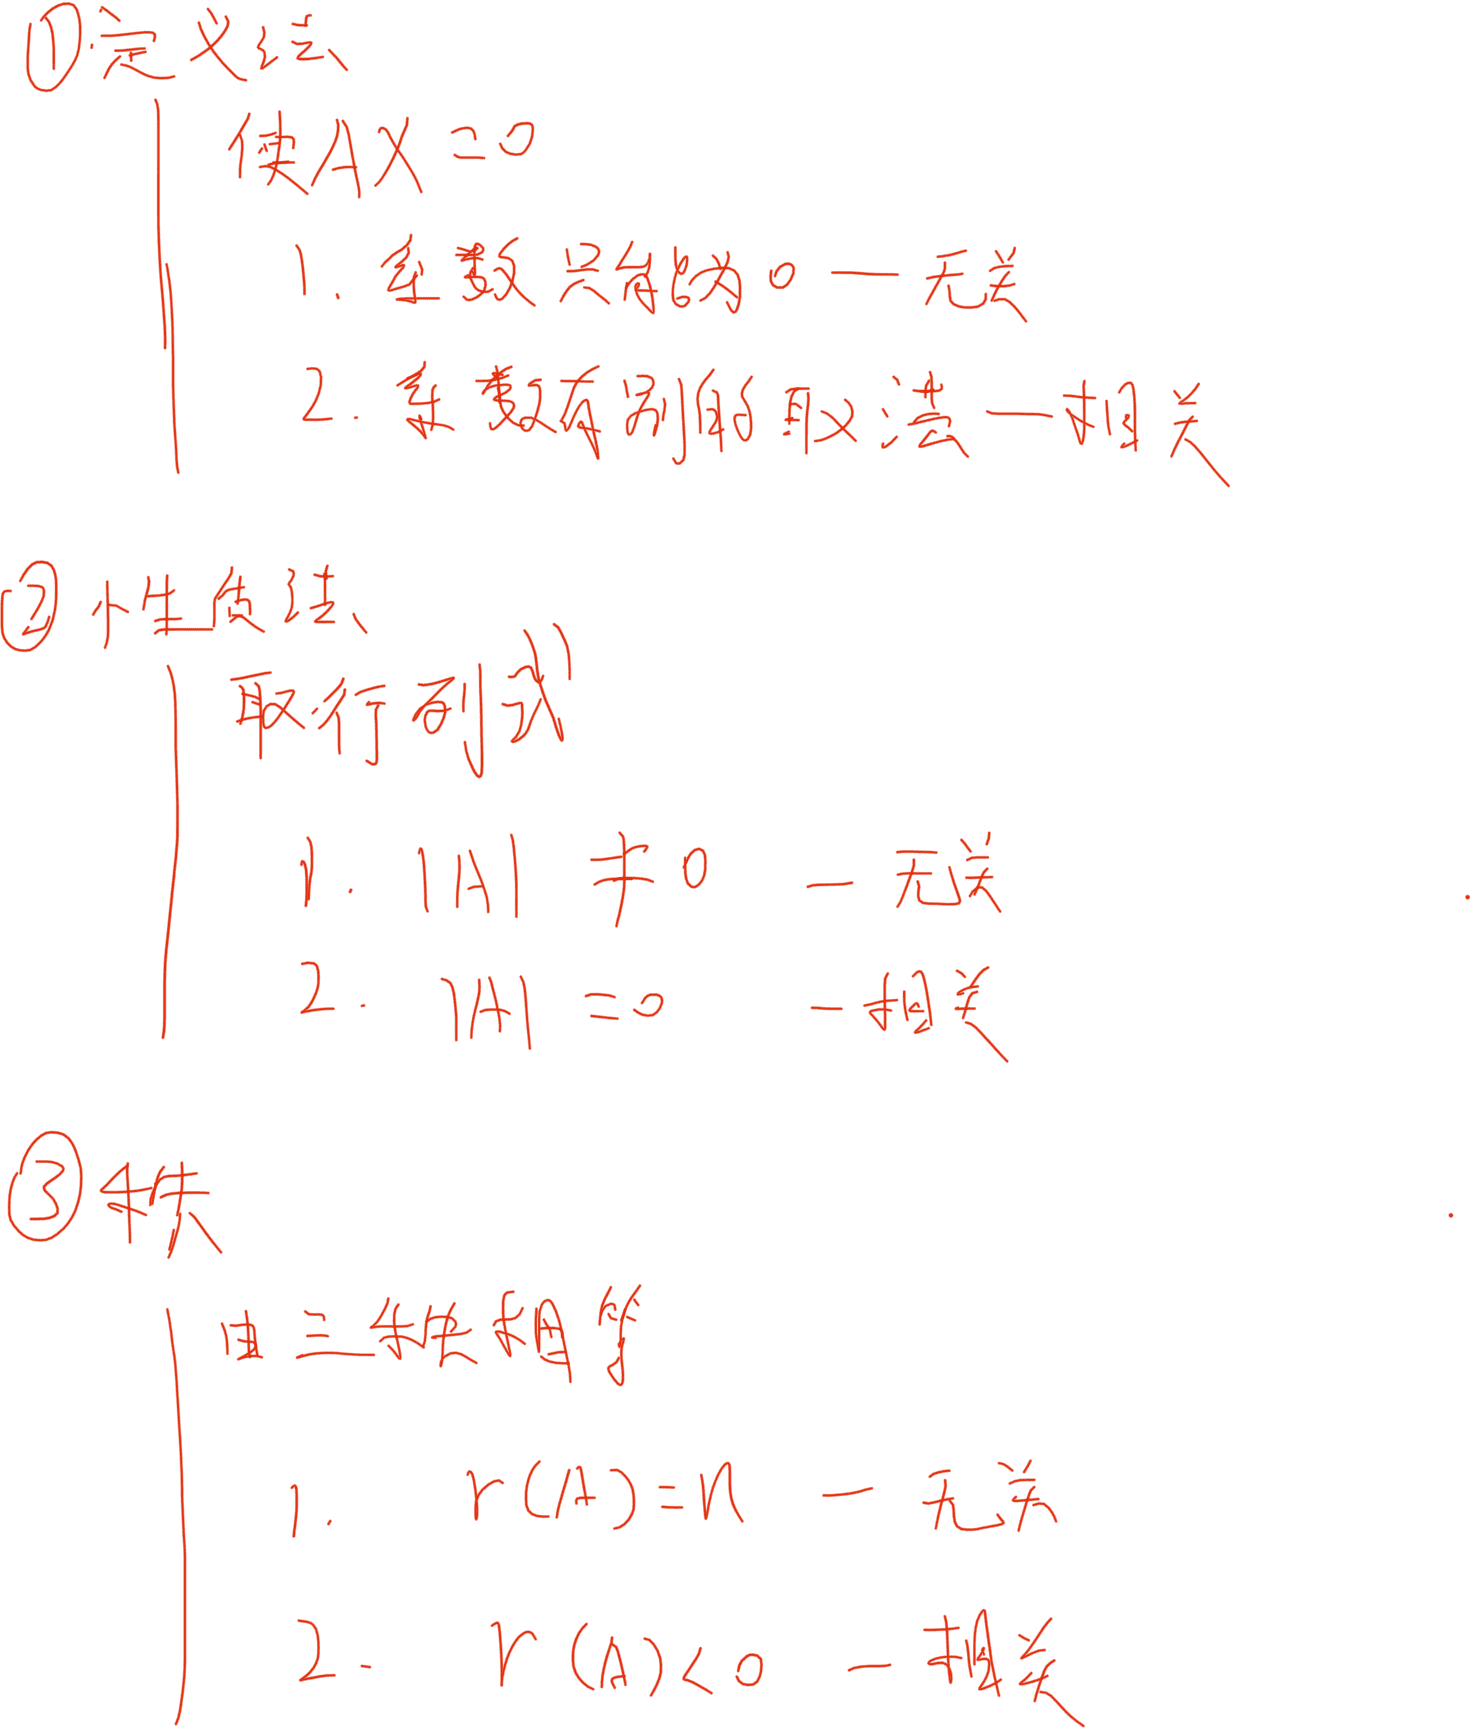 ① 定义法
使AX=0
1. 系数只能为0 — 无关
2. 系数有别的取法 — 相关
② 性质法
取行列式
1. |A| ≠ 0 — 无关
2. |A| = 0 — 相关
③ 秩
由三秩相等
1. r(A)=n — 无关
2. r(A)<0 — 相关